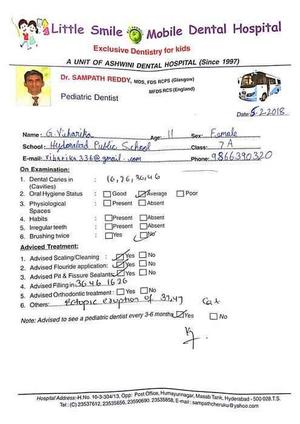 Little Smile Mobile Dental Hospital
Exclusive Dentistry for kids
A UNIT OF ASHWINI DENTAL HOSPITAL (Since 1997)
Dr. SAMPATH REDDY, MDS, FDS RCPS (Glasgow)
MFDS RCS (England)
Pediatric Dentist
Date: 5-2-2018
Name: G. Viharika Age: 11 Sex: Female
School: Hyderabad Public School Class: 7A
E-mail: viharika336@gmail.com Phone: 9866390320
On Examination:
1. Dental Caries in (Cavities) 16, 26, 36, 46
2. Oral Hygiene Status : Good Average Poor
3. Physiological Spaces : Present Absent
4. Habits : Present Absent
5. Irregular teeth : Present Absent
6. Brushing twice : Yes No
Adviced Treatment:
1. Advised Scaling/Cleaning : Yes No
2. Advised Flouride application: Yes No
3. Advised Pit & Fissure Sealants Yes No
4. Advised Filling in 36 46 16 26
5. Advised Orthodontic treatment : Yes No
6. Others: Ectopic eruption of 37, 47
Note: Advised to see a pediatric dentist every 3-6 months Yes No
Hospital Address: H.No. 10-3-304/13, Opp: Post Office, Humayunnagar, Masab Tank, Hyderabad - 500 028.T.S.
Tel: (C) 23537612, 23535656, 23590690, 23535858, E-mail: sampathcheruku@yahoo.com